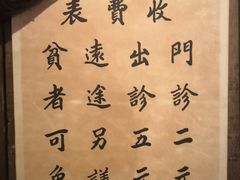 收費表
門診二元
出診五元
遠途另議
貧者可免